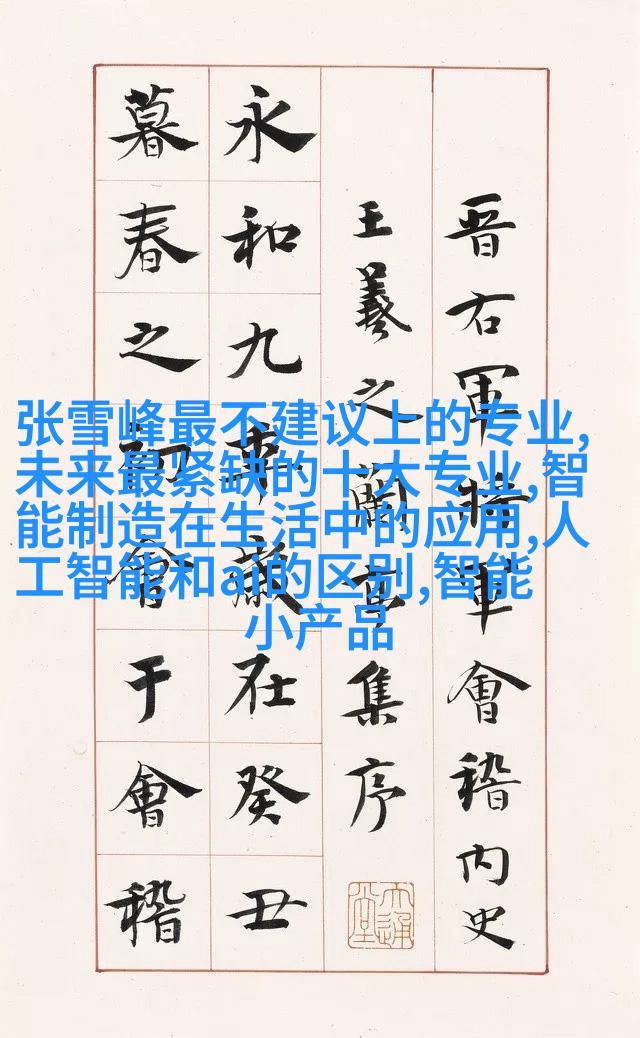 晋右軍將軍會稽内史
王羲之蘭亭集序
永和九年歲在癸丑
暮春之初會于會稽
张雪峰最不建议上的专业,
未来最紧缺的十大专业,智
能制造在生活中的应用,人
工智能和ai的区别,智能
小产品